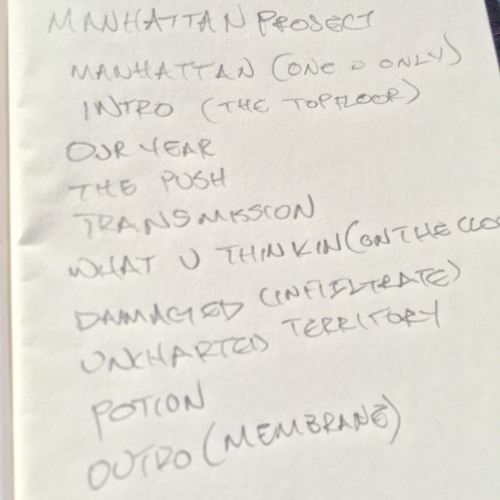 MANHATTAN PROJECT
MANHATTAN (ONE & ONLY)
INTRO (THE TOPFLOOR)
OUR YEAR
THE PUSH
TRANSMISSION
WHAT U THINKIN (ON THE
DAMAGED (INFILTRATE)
UNCHARTED TERRITORY
POTION
OUTRO (MEMBRANE)